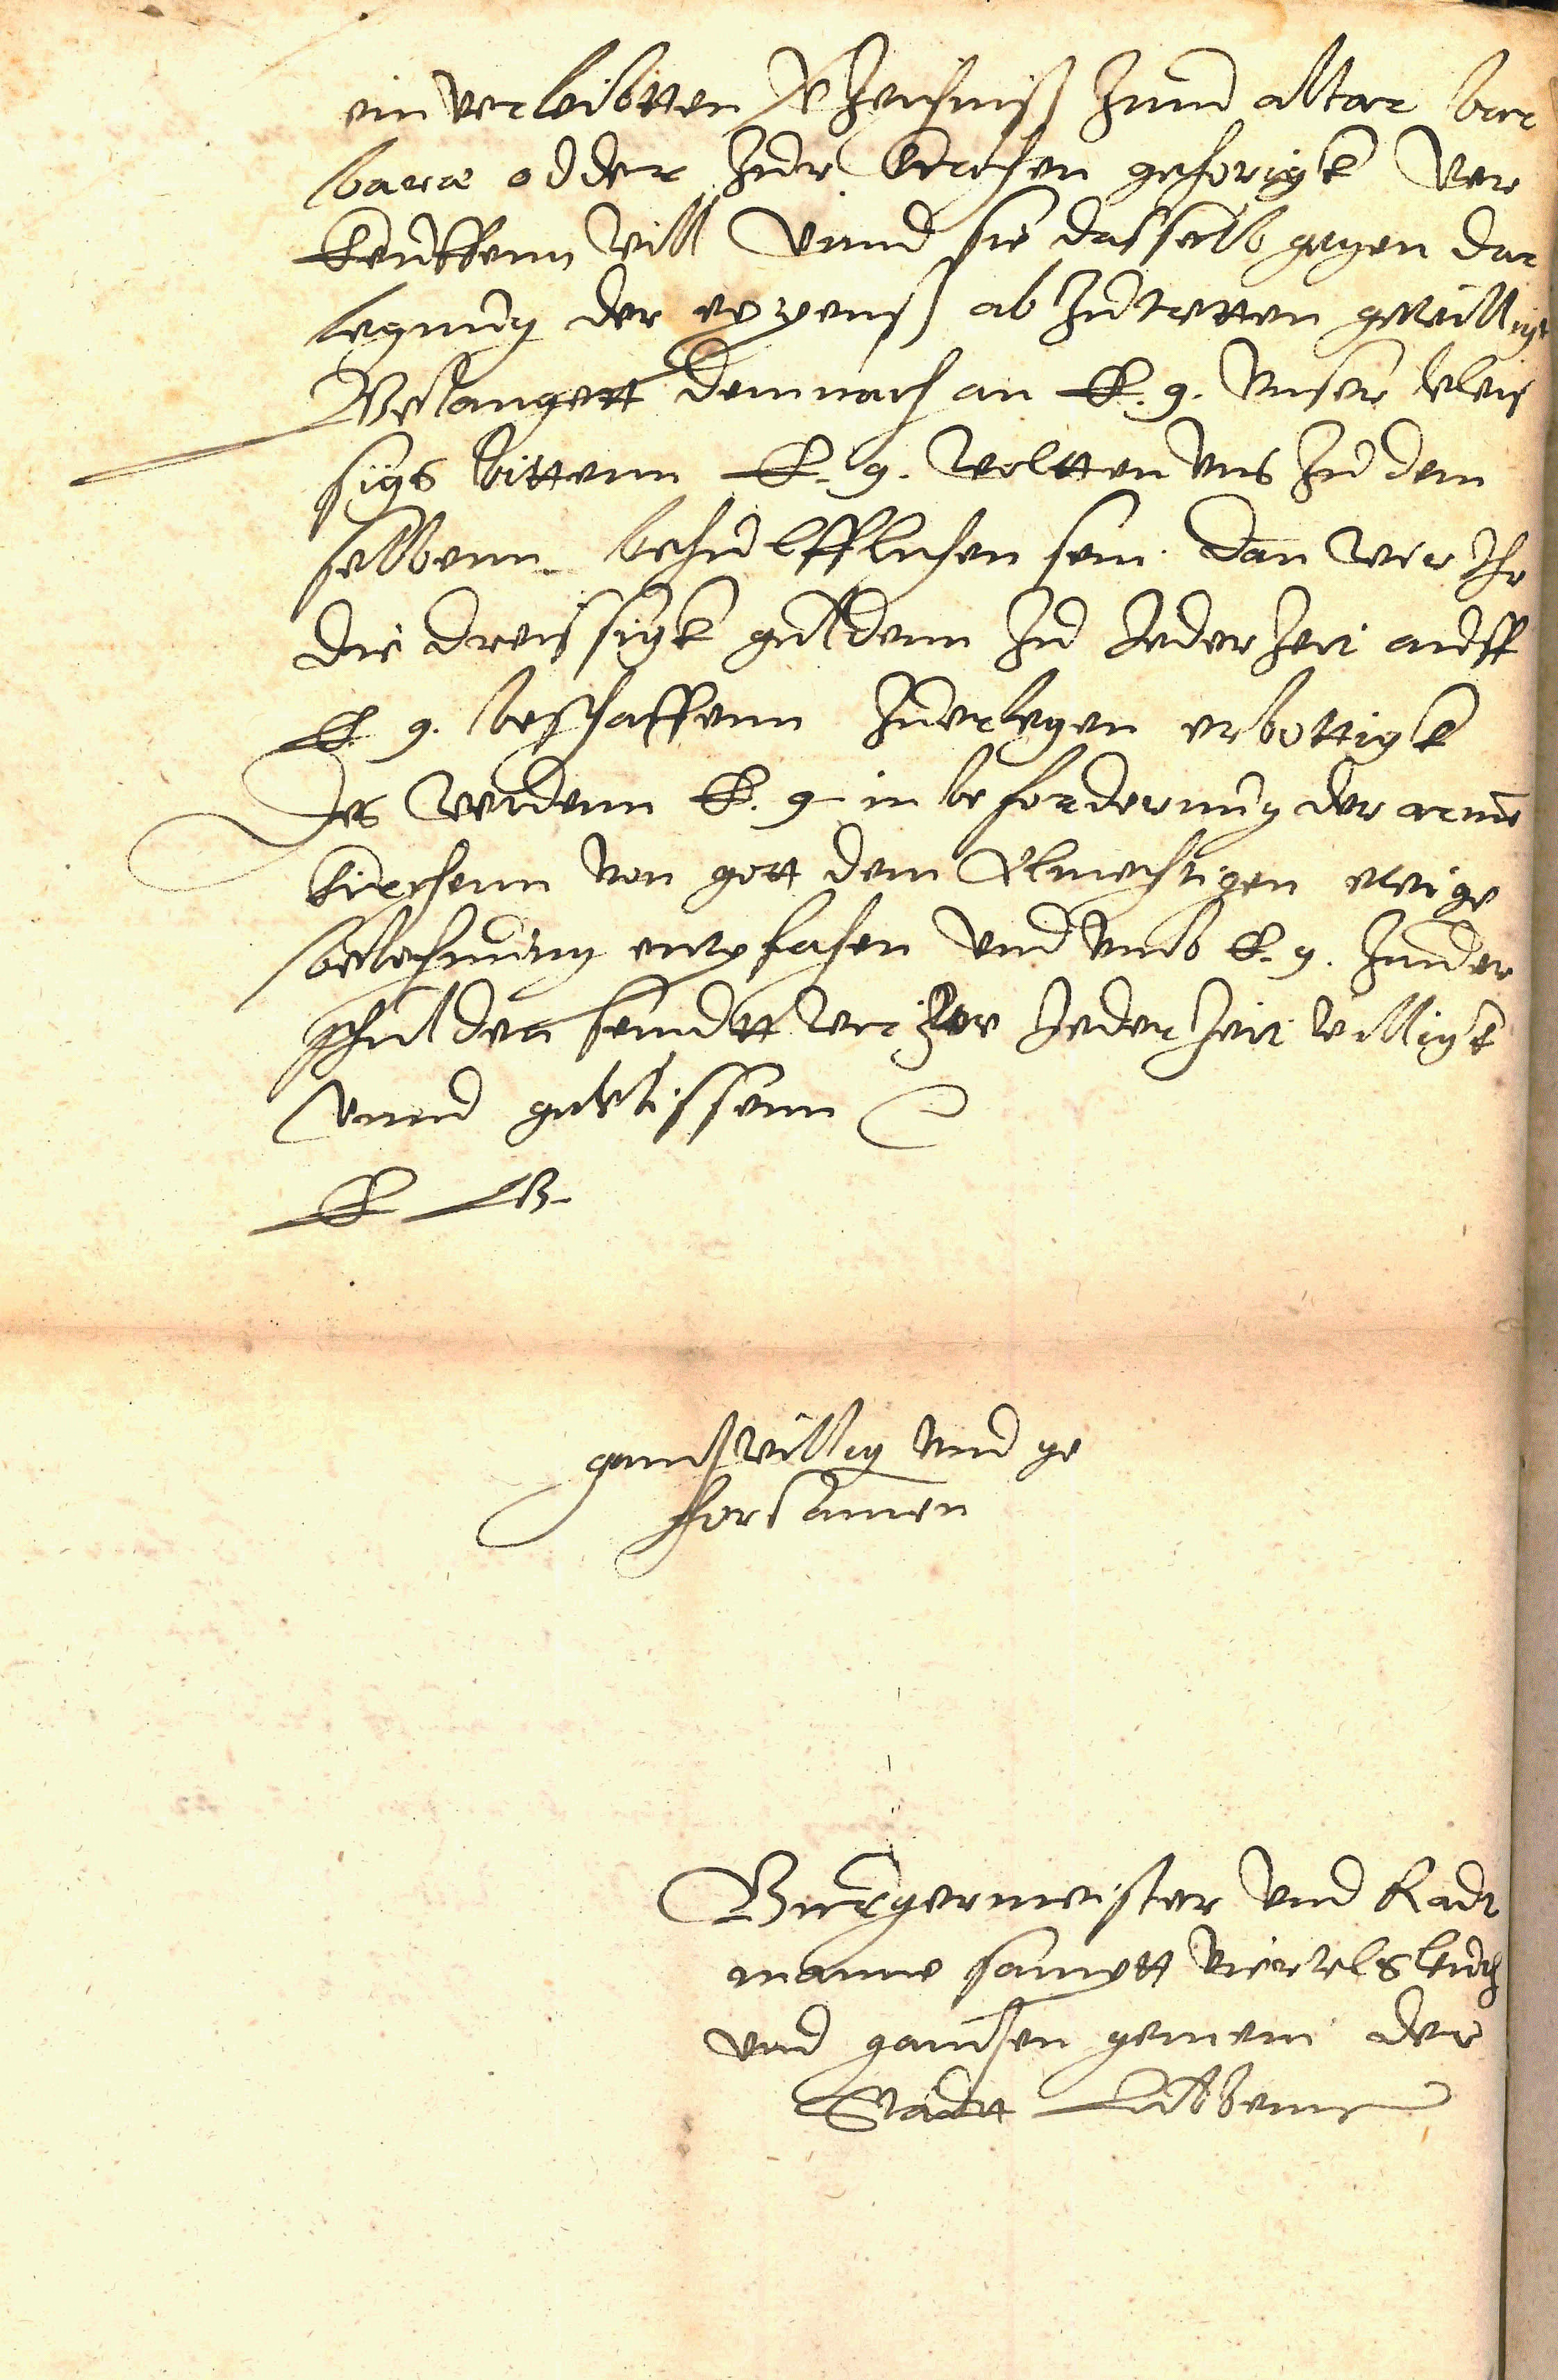 ein verleibtten Vorzeichniß zum altar bar
barae odder zur Kirchen gehorigk ver
kauffenn will vnnd sie dasselb gegen dar
legung der expenß ab zutretten gewilligt
Belangett demnach an E. g. vnser vleis
sigs bittenn E. g. woltten vns zu dem
selbenn behulfflichen sein. Dan wir Ihr
die dreissigk guldenn zu Jeder Zeit auff
E. g. beschaffenn zuerlegen erbottigk
Des werdenn E. g. in beforderung der arme
kirchenn von gott dem Almechtigen ewige
belohnung entpfahen vnd vmb E. g. zuuor
schulden seindtt wir Jeder Zeit willigk
vnnd geflissenn
E G.
gantzwillig vnd ge
horsamen
Burgermeister vnd Radt
manne sampтt viertelsleuth
vnd gantzen gemein der
Stadtt Lubbenn